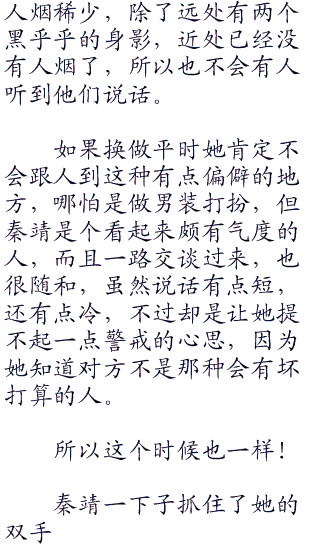 人烟稀少，除了远处有两个
黑乎乎的身影，近处已经没
有人烟了，所以也不会有人
听到他们说话。
如果换做平时她肯定不
会跟人到这种有点偏僻的地
方，哪怕是做男装打扮，但
秦靖是个看起来颇有气度的
人，而且一路交谈过来，也
很随和，虽然说话有点短，
还有点冷，不过却是让她提
不起一点警戒的心思，因为
她知道对方不是那种会有坏
打算的人。
所以这个时候也一样！
秦靖一下子抓住了她的
双手